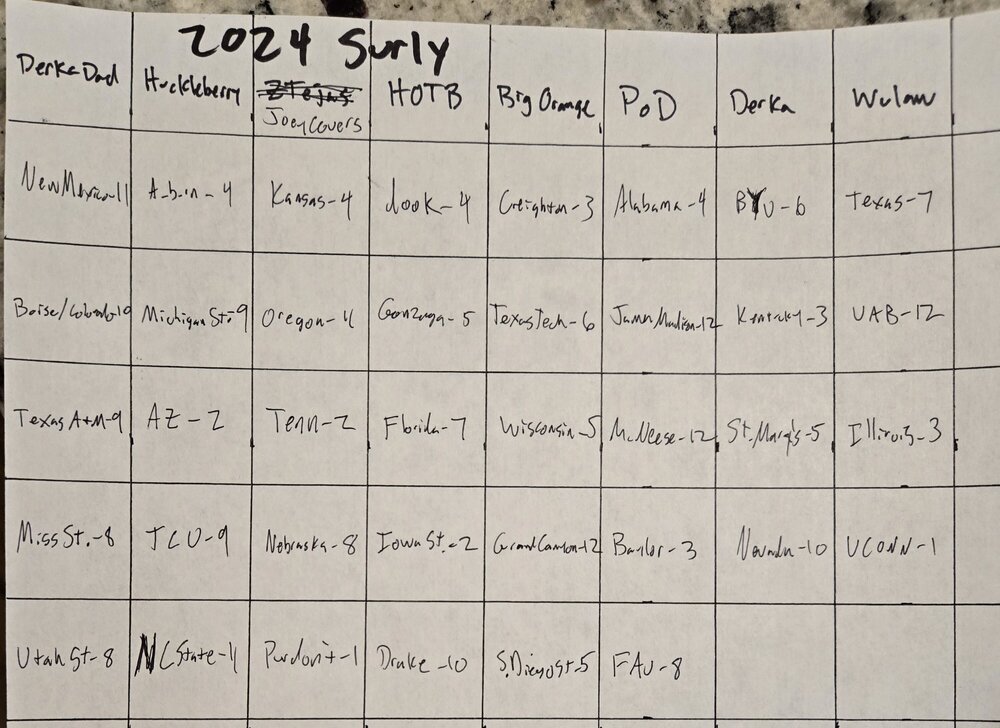 2024 Surly
Derka Dad Huckleberry ZTejas HOTB Big Orange PoD Derka Wulaw
Joey Covers
New Mexico-11 Auburn-4 Kansas-4 dook-4 Creighton-3 Alabama-4 BYU-6 Texas-7
Boise/Colorado-10 Michigan St.-9 Oregon-11 Gonzaga-5 Texas Tech-6 James Madison-12 Kentucky-3 UAB-12
Texas A+M-9 AZ-2 Tenn-2 Florida-7 Wisconsin-5 McNeese-12 St. Mary's-5 Illinois-3
Miss St.-8 TCU-9 Nebraska-8 Iowa St.-2 Grand Canyon-12 Baylor-3 Nevada-10 UCONN-1
Utah St-8 NC State-11 Purdon't-1 Drake-10 S. Diego St-5 FAU-8